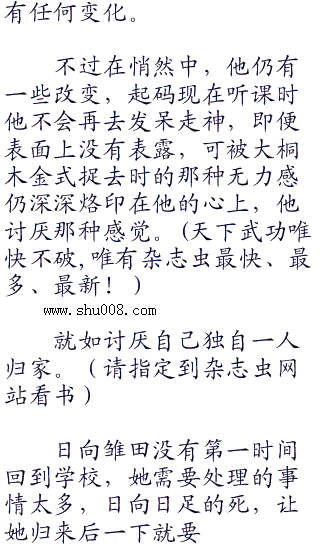 有任何变化。
不过在悄然中，他仍有
一些改变，起码现在听课时
他不会再去发呆走神，即便
表面上没有表露，可被大桐
木金式捉去时的那种无力感
仍深深烙印在他的心上，他
讨厌那种感觉。(天下武功唯
快不破,唯有杂志虫最快、最
多、最新！ )
www.shu008.com
就如讨厌自己独自一人
归家。（请指定到杂志虫网
站看书）
日向雏田没有第一时间
回到学校，她需要处理的事
情太多，日向日足的死，让
她归来后一下就要